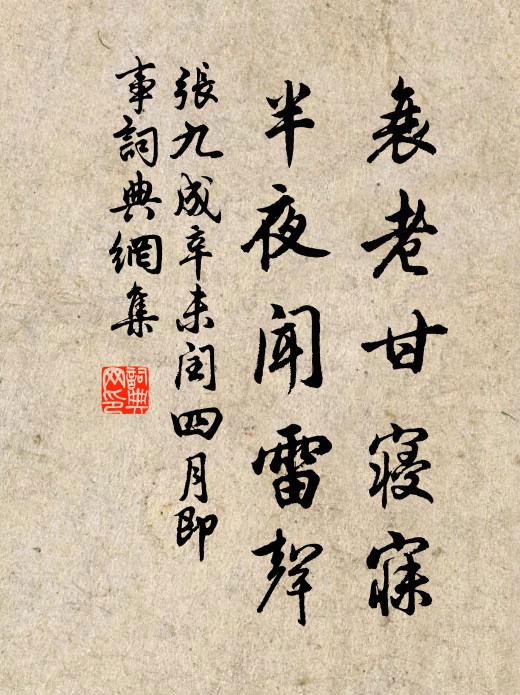 衰老甘寢寐
半夜聞雷聲
張九成辛未閏四月即
事詞典網集
詞典
网印